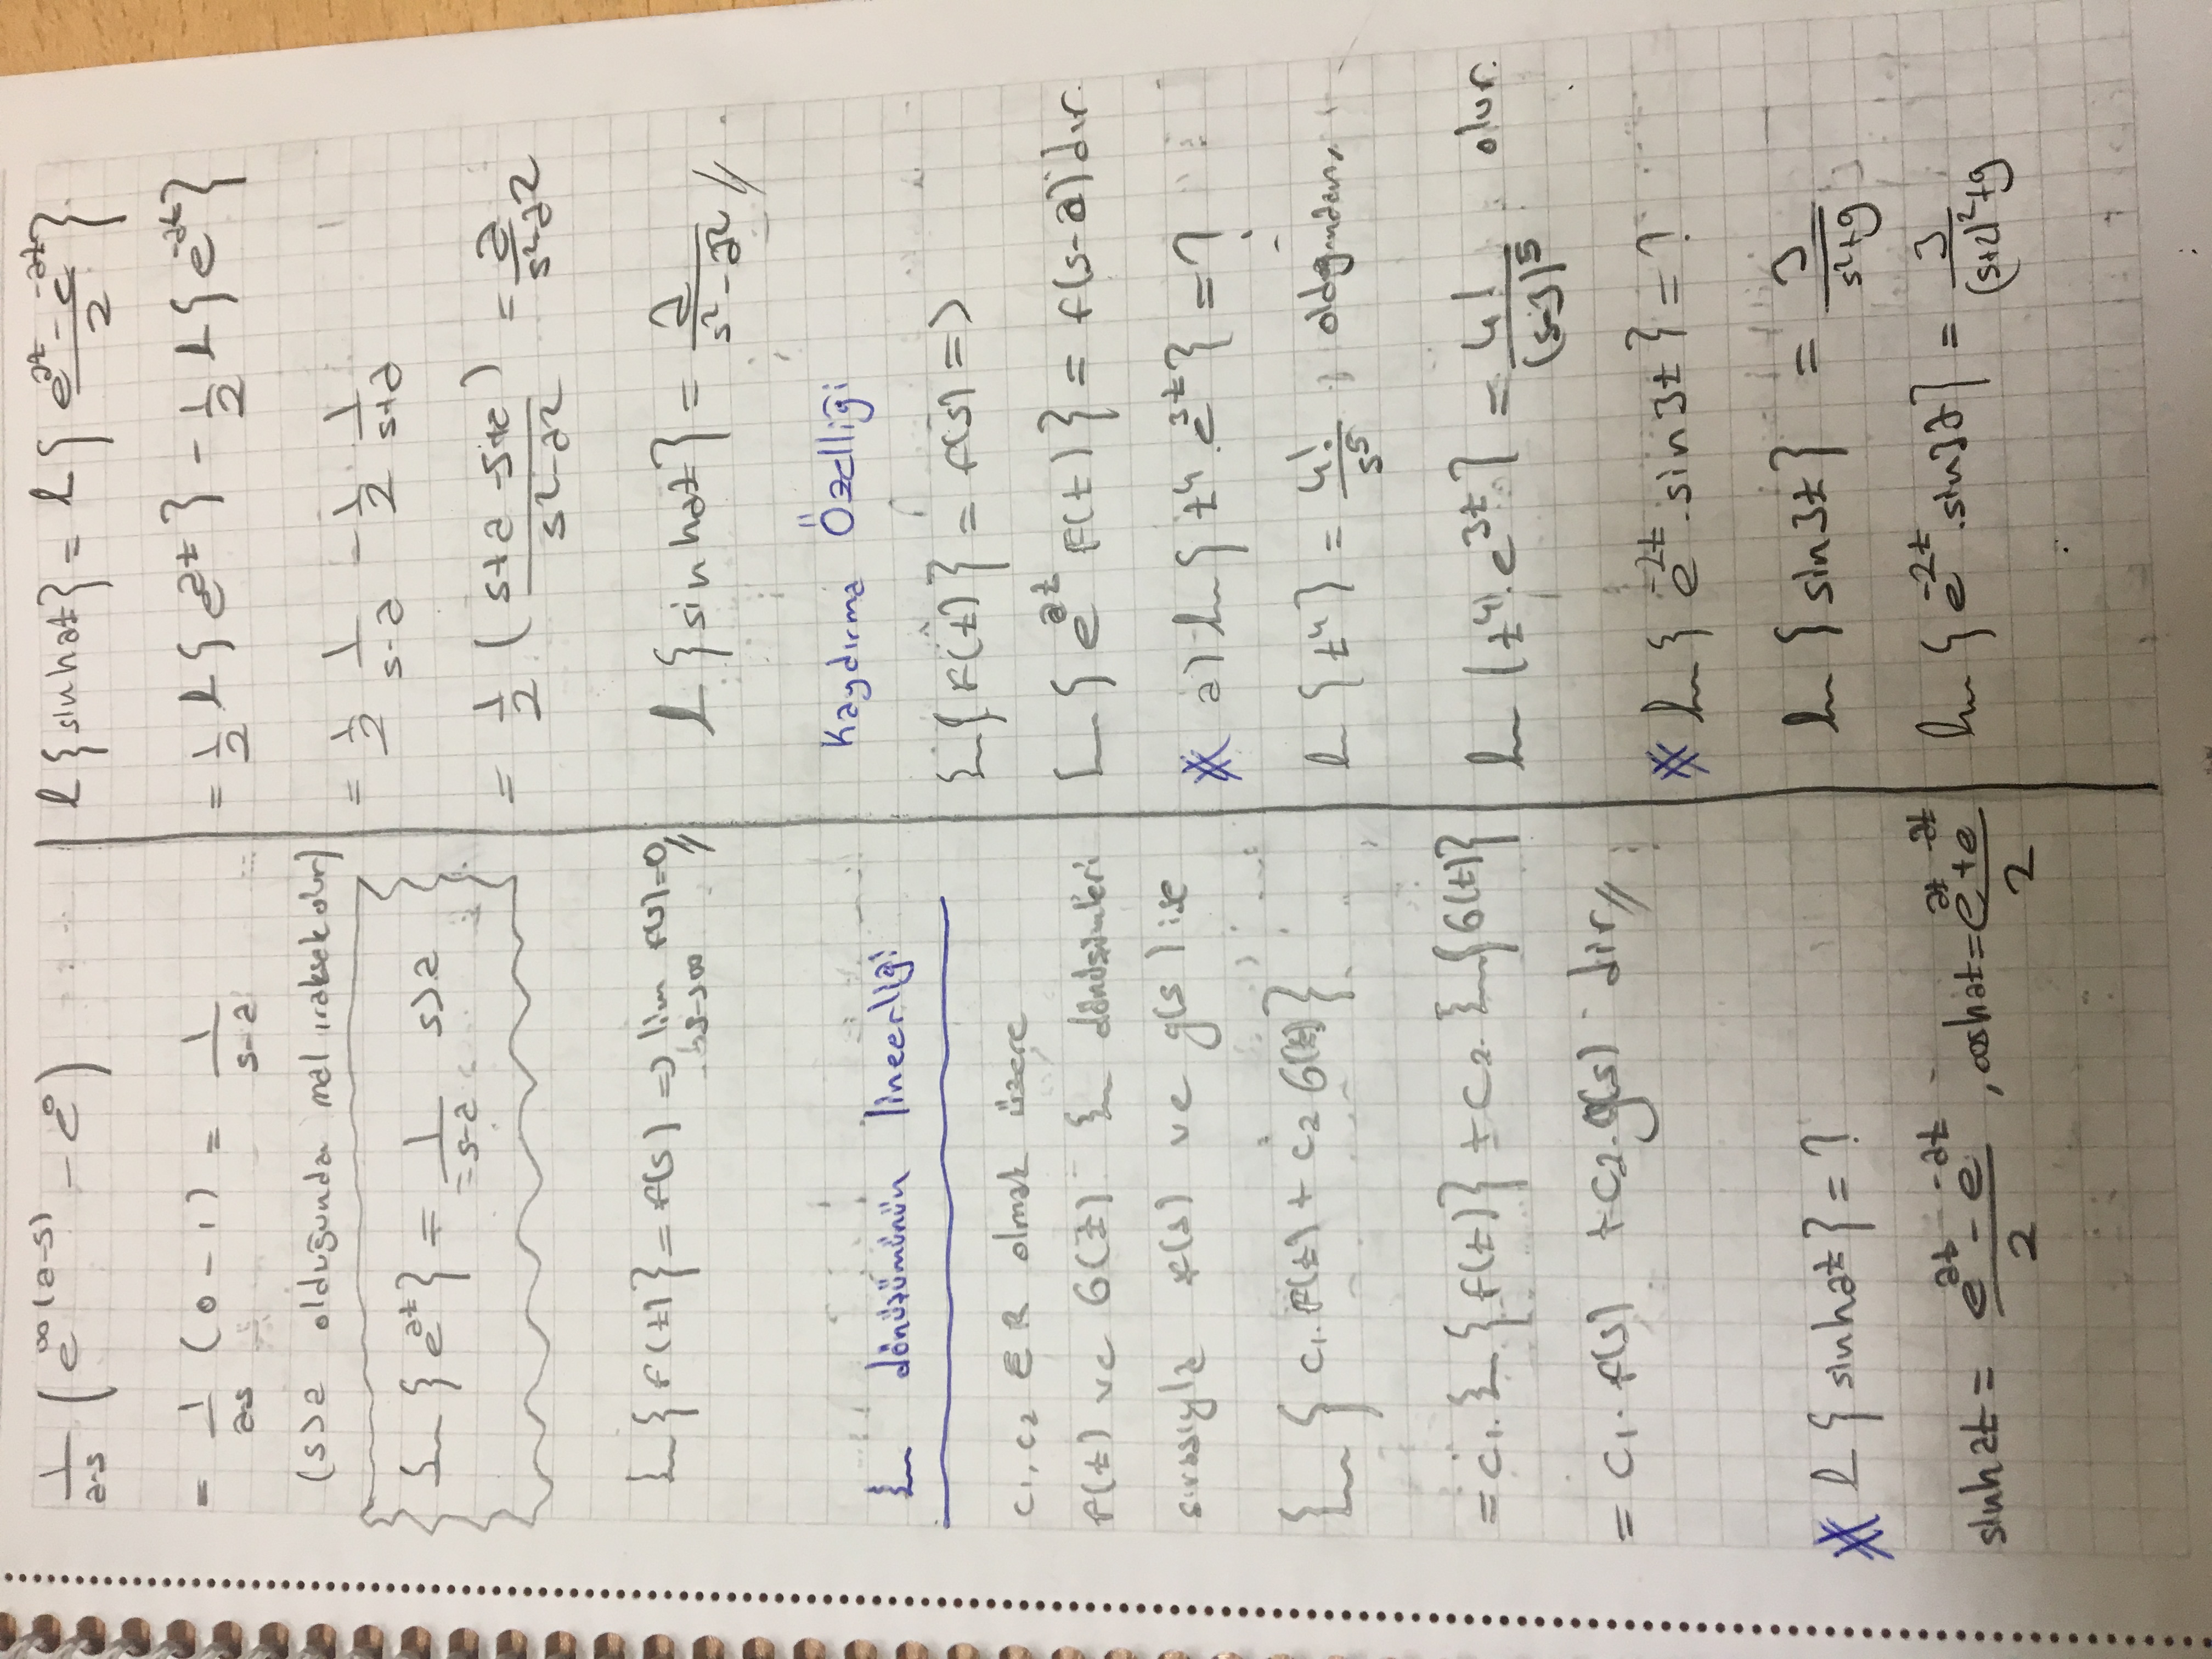 1/(a-s) (e^∞(a-s) - e^0)
= 1/(a-s) (0-1) = 1/(s-a)
(s>a olduğunda mal ıraksak olur)
L{e^at} = 1/(s-a) s>a
L{F(t)} = f(s) => lim s->∞ f(s)=0//
L dönüşümünün lineerliği
c1, c2 ∈ R olmak üzere
F(t) ve G(t) L dönüşümleri
sırasıyla f(s) ve g(s) ise
L{c1.F(t) + c2 G(t)}
= c1.L{F(t)} + c2.L{G(t)}
= c1.f(s) + c2.g(s) dir//
* L{sinhat} = ?
sinhat = (e^at - e^-at)/2 , coshat = (e^at + e^-at)/2
L{sinhat} = L{(e^at - e^-at)/2}
= 1/2 L{e^at} - 1/2 L{e^-at}
= 1/2 1/(s-a) - 1/2 1/(s+a)
= 1/2 ((s+a-s+a)/(s²-a²)) = a/(s²-a²)
L{sinhat} = a/(s²-a²)//
Kaydırma Özelliği
L{F(t)} = f(s) =>
L{e^at F(t)} = f(s-a)'dır.
* a) L{t^4.e^3t} = ?
L{t^4} = 4!/s^5 ; olduğundan,
L{t^4.e^3t} = 4!/(s-3)^5 olur.
* L{e^-2t.sin3t} = ?
L{sin3t} = 3/(s²+9)
L{e^-2t.sin3t} = 3/((s+2)²+9)